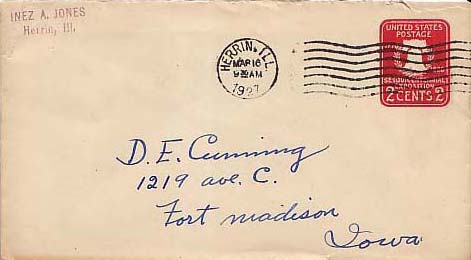 INEZ A. JONES
Herrin, Ill.
HERRIN, ILL.
MAR 16
9 AM
1927
UNITED STATES
POSTAGE
SESQUICENTENNIAL
EXPOSITION
2 CENTS 2
D. E. Cunning
1219 ave. C.
Fort madison
Iowa